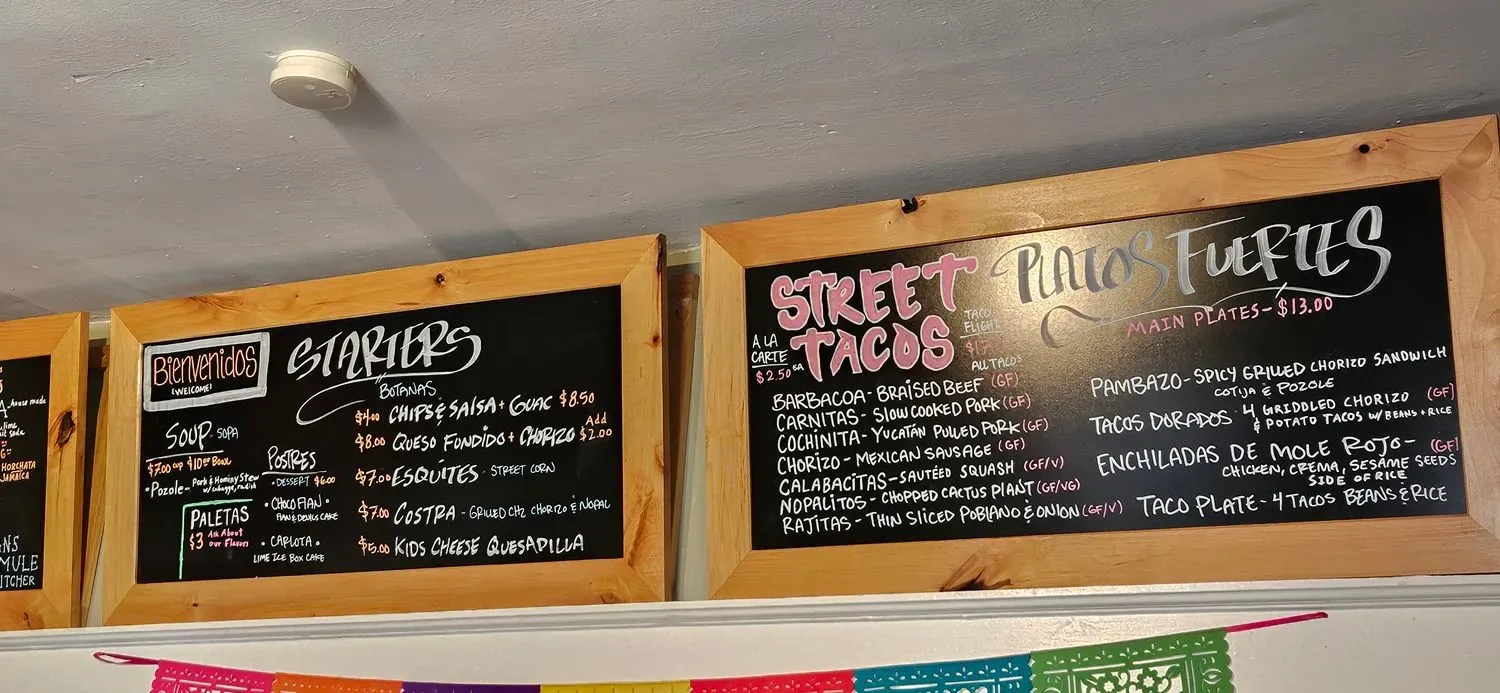 house made
HORCHATA
JAMAICA
MULE
Bienvenidos
(WELCOME)
STARTERS
BOTANAS
$4.00 CHIPS & SALSA + GUAC $8.50
$8.00 QUESO FUNDIDO + CHORIZO Add $2.00
$7.00 ESQUITES - STREET CORN
$7.00 COSTRA - GRILLED CHZ CHORIZO & NOPAL
$5.00 KIDS CHEESE QUESADILLA
SOUP - SOPA
$7.00 CUP $10.00 BOWL
• Pozole - Pork & Hominy Stew
w/ Cabbage, radish
PALETAS
$3 Ask About
our Flavors
POSTRES
- DESSERT $6.00
• CHOCOFLAN •
FLAN & DEVILS CAKE
• CARLOTA •
LIME ICE BOX CAKE
STREET
TACOS
A LA
CARTE
$2.50 EA
TACO
FLIGHT
ALL TACOS
BARBACOA - BRAISED BEEF (GF)
CARNITAS - SLOW COOKED PORK (GF)
COCHINITA - YUCATÁN PULLED PORK (GF)
CHORIZO - MEXICAN SAUSAGE (GF)
CALABACITAS - SAUTÉED SQUASH (GF/V)
NOPALITOS - CHOPPED CACTUS PLANT (GF/VG)
RAJITAS - THIN SLICED POBLANO & ONION (GF/V)
PLATOS FUERTES
MAIN PLATES - $13.00
PAMBAZO - SPICY GRILLED CHORIZO SANDWICH
COTIJA & POZOLE
TACOS DORADOS - 4 GRIDDLED CHORIZO (GF)
& POTATO TACOS W/ BEANS + RICE
ENCHILADAS DE MOLE ROJO - (GF)
CHICKEN, CREMA, SESAME SEEDS
SIDE OF RICE
TACO PLATE - 4 TACOS BEANS & RICE